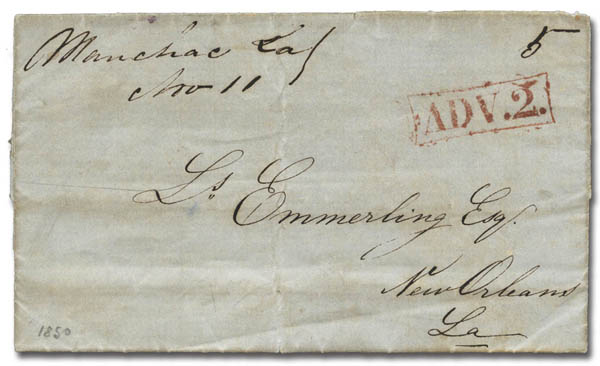 Manchac La 5
Nov 11
ADV.2.
Ls. Emmerling Esq.
New Orleans
La
1850